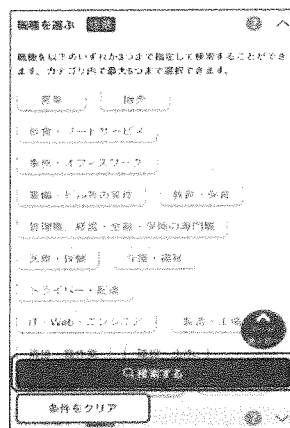 職種を選ぶ
職種を以下のいずれか3つまで指定して検索することができ
ます。カテゴリ内で最大5つまで選択できます。
営業 販売
飲食・フードサービス
事務・オフィスワーク
警備・ビル等の管理 教育・保育
管理職、経営・金融・保険の専門職
医療・保健 介護・福祉
ドライバー・配達
IT・Web・エンジニア 製造・工場
検索する
条件をクリア